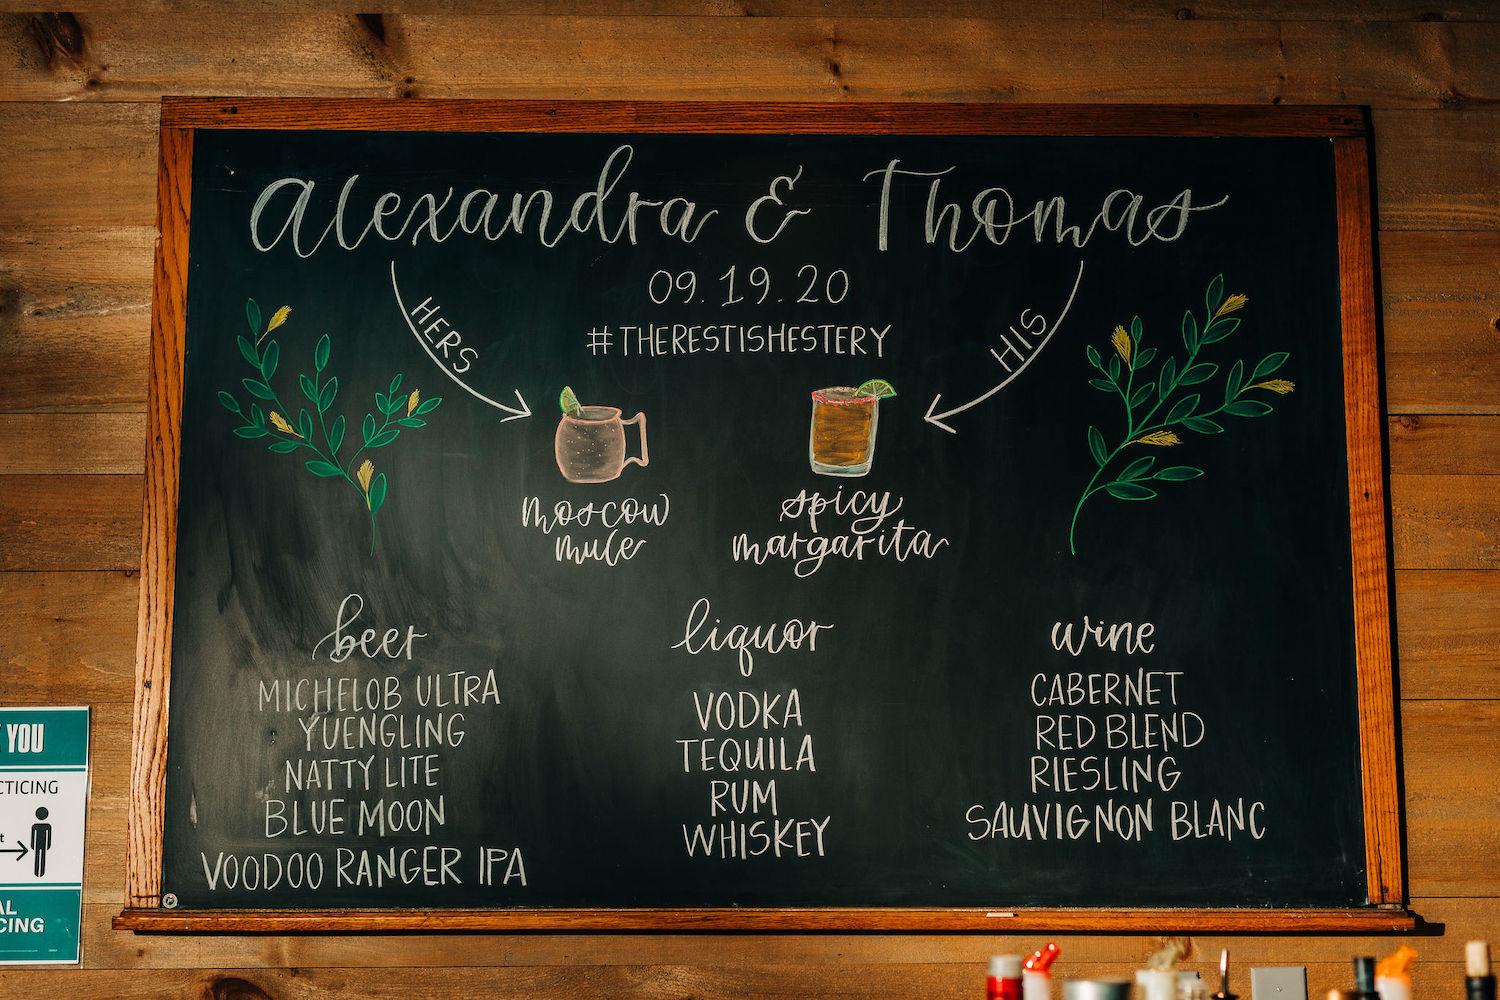 Alexandra & Thomas
09.19.20
#THERESTISHESTERY
HERS
HIS
moscow
mule
spicy
margarita
beer
MICHELOB ULTRA
YUENGLING
NATTY LITE
BLUE MOON
VOODOO RANGER IPA
liquor
VODKA
TEQUILA
RUM
WHISKEY
wine
CABERNET
RED BLEND
RIESLING
SAUVIGNON BLANC
YOU
CTICING
t
AL
CING